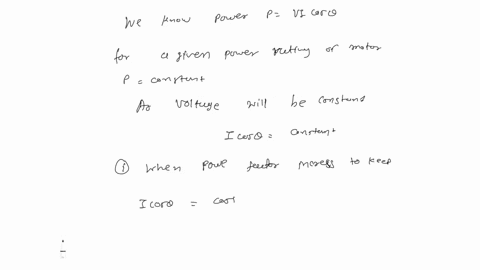 We know power P = VI cosθ
for a given power rating or motor
P = constant
As voltage will be constant
I cosθ = constant
① When power factor increases to keep
I cosθ = cos